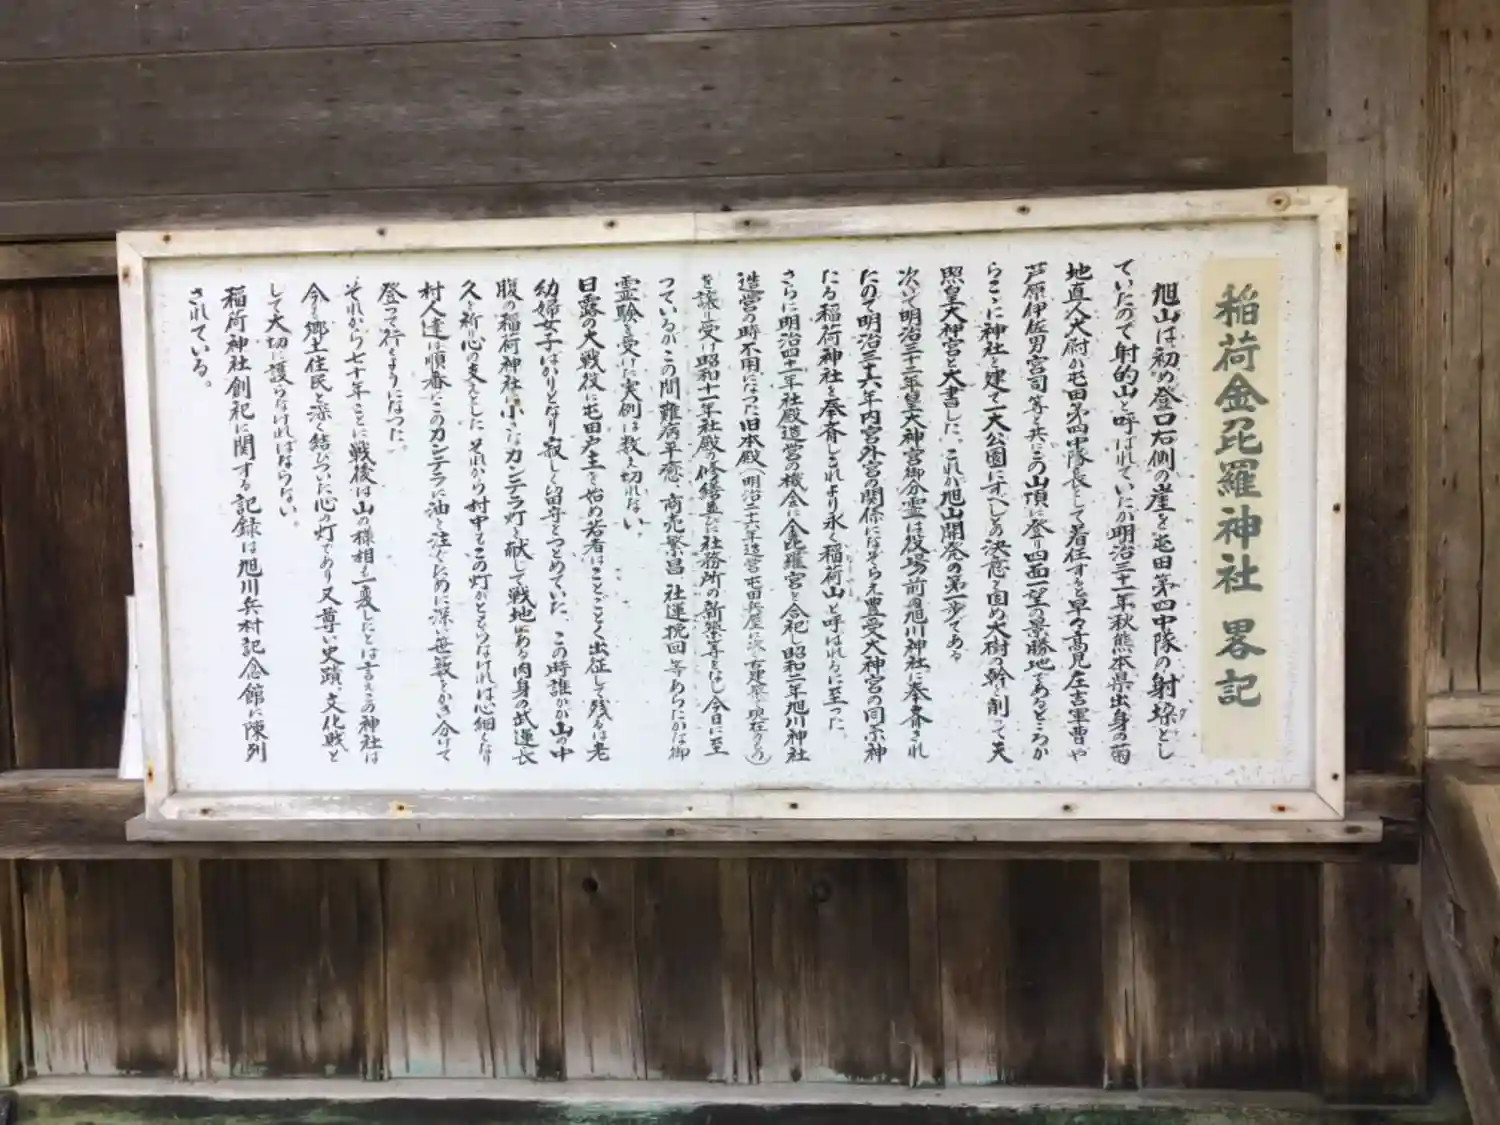 稲荷金毘羅神社 畧記
旭山は初め登口右側の崖を屯田第四中隊の射垜とし
ていたので射的山と呼ばれていたが明治三十一年秋熊本県出身の菊
地直人大尉が屯田第四中隊長として着任すると早々高見左吉軍曹や
芦原伊佐男宮司等と共にこの山頂に登り四面一望の景勝地であるところか
らここに神社を建て一大公園にすべしとの決意を固め大樹の幹を削って天
照皇大神宮と大書した、これが旭山開発の第一歩である
次いで明治三十二年皇大神宮御分霊は役場前の旭川神社に奉斎され
たので明治三十六年内宮外宮の関係になぞらえ豊受大神宮の同示神
たる稲荷神社を奉斎しこれより永く稲荷山と呼ばれるに至った、
さらに明治四十一年社殿造営の機会に金毘羅宮を合祀し昭和二年旭川神社
造営の時不用になった旧本殿(明治二十六年造営屯田兵屋に次ぐ古建築で現在のもの)
を譲り受け昭和十一年社殿の修繕並びに社務所の新築等をなし今日に至
っているがこの間難病平癒、商売繁昌、社運挽回等あらたかな御
霊験を受けた実例は数え切れない、
日露の大戦役に屯田戸主を始め若者はことごとく出征して残るは老
幼婦女子ばかりとなり寂しく留守をつとめていた、この時誰かが山の中
腹の稲荷神社に小さなカンテラ灯を献じて戦地にある肉身の武運長
久を祈り心の支えとした、それから村中でこの灯がともらなければ心細くなり
村人達は順番にこのカンテラに油を注ぐために深い笹藪をかき分けて
登って行くようになった。
それから七十年ことに戦後は山の様相も一変したとは言えこの神社は
今も郷土住民と深く結びついた心の灯であり又尊い史蹟、文化財と
して大切に護らなければならない。
稲荷神社創祀に関する記録は旭川兵村記念館に陳列
されている。